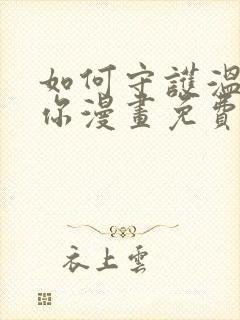 如何守護溫
你漫畫免費
衣上雲